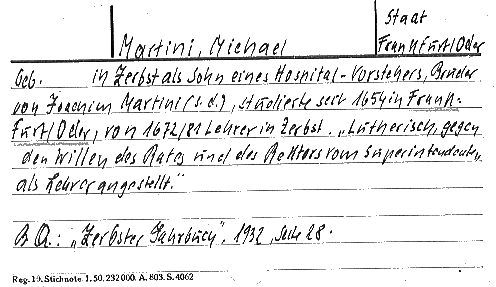 Staat
Martini, Michael Frankfurt/Oder
Geb. in Zerbst als Sohn eines Hospital-Vorstehers, Bruder
von Joachim Martini (s.d.), studierte seit 1654 in Frank-
furt/Oder, von 1672/81 Lehrer in Zerbst. „Lutherisch, gegen
den Willen des Rates und des Rektors vom Superintendenten
als Lehrer angestellt."
B A.: „Zerbster Jahrbuch", 1932, Seite 28.
Reg. 19. Stichnote 1. 50. 232000. A. 803. S. 4062